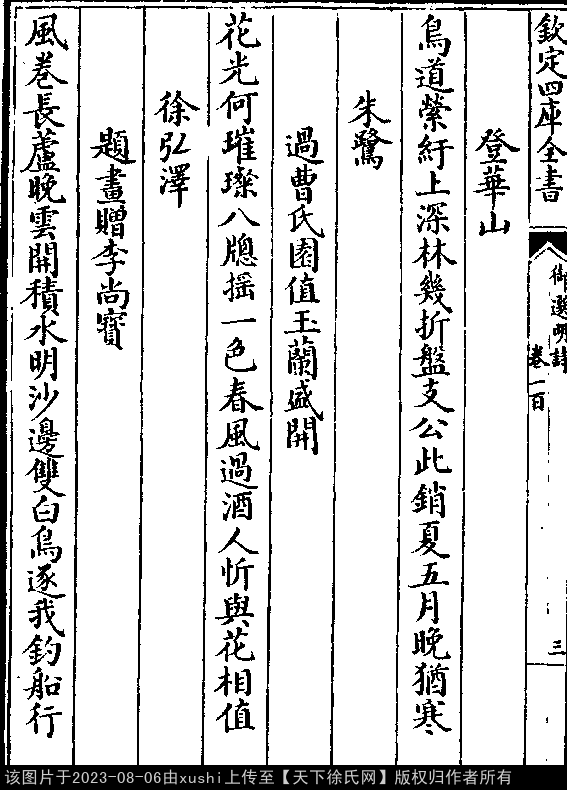 欽定四庫全書
御選明詩
卷一百
三
登華山
鳥道縈紆上深林幾折盤支公此銷夏五月晚猶寒
朱鷺
過曹氏園值玉蘭盛開
花光何璀璨八牕搖一色春風過酒人忻與花相值
徐弘澤
題畫贈李尚寶
風卷長蘆晚雲開積水明沙邊雙白鳥逐我釣船行
该图片于2023-08-06由xushi上传至【天下徐氏网】版权归作者所有